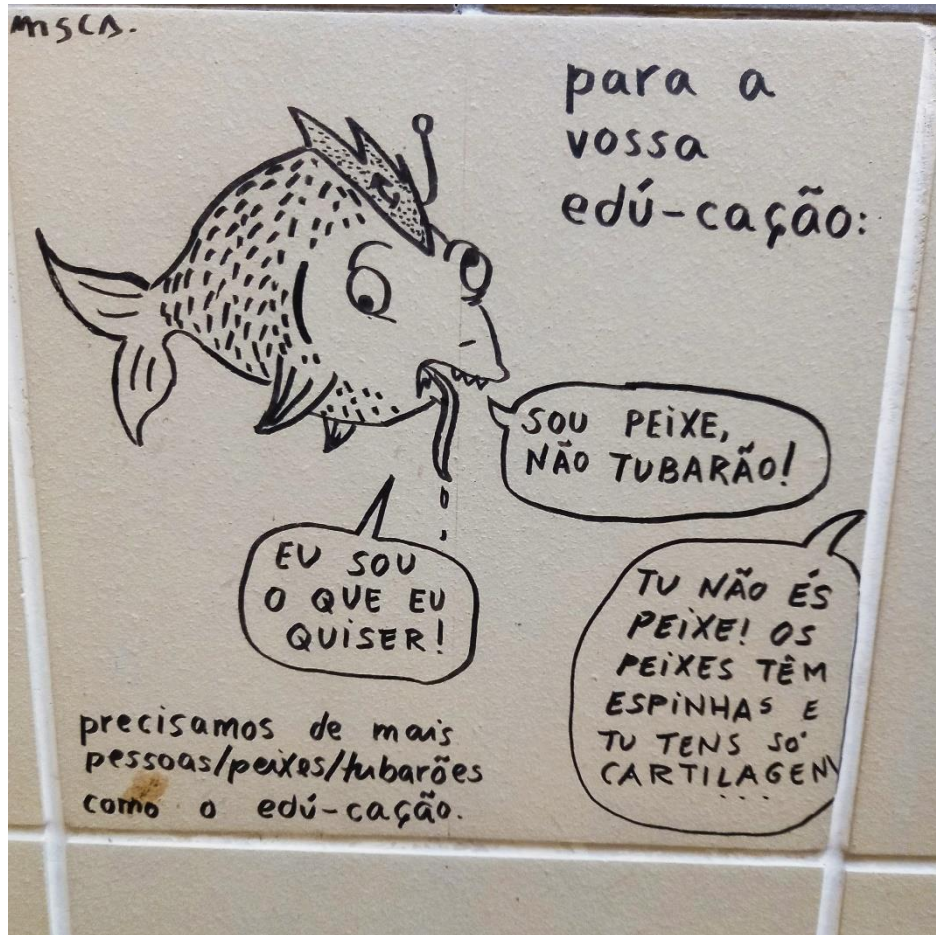 MISCA.
para a
vossa
edú-cação:
SOU PEIXE,
NÃO TUBARÃO!
EU SOU
O QUE EU
QUISER!
TU NÃO ÉS
PEIXE! OS
PEIXES TÊM
ESPINHAS E
TU TENS SÓ
CARTILAGEM
...
precisamos de mais
pessoas/peixes/tubarões
como o edú-cação.